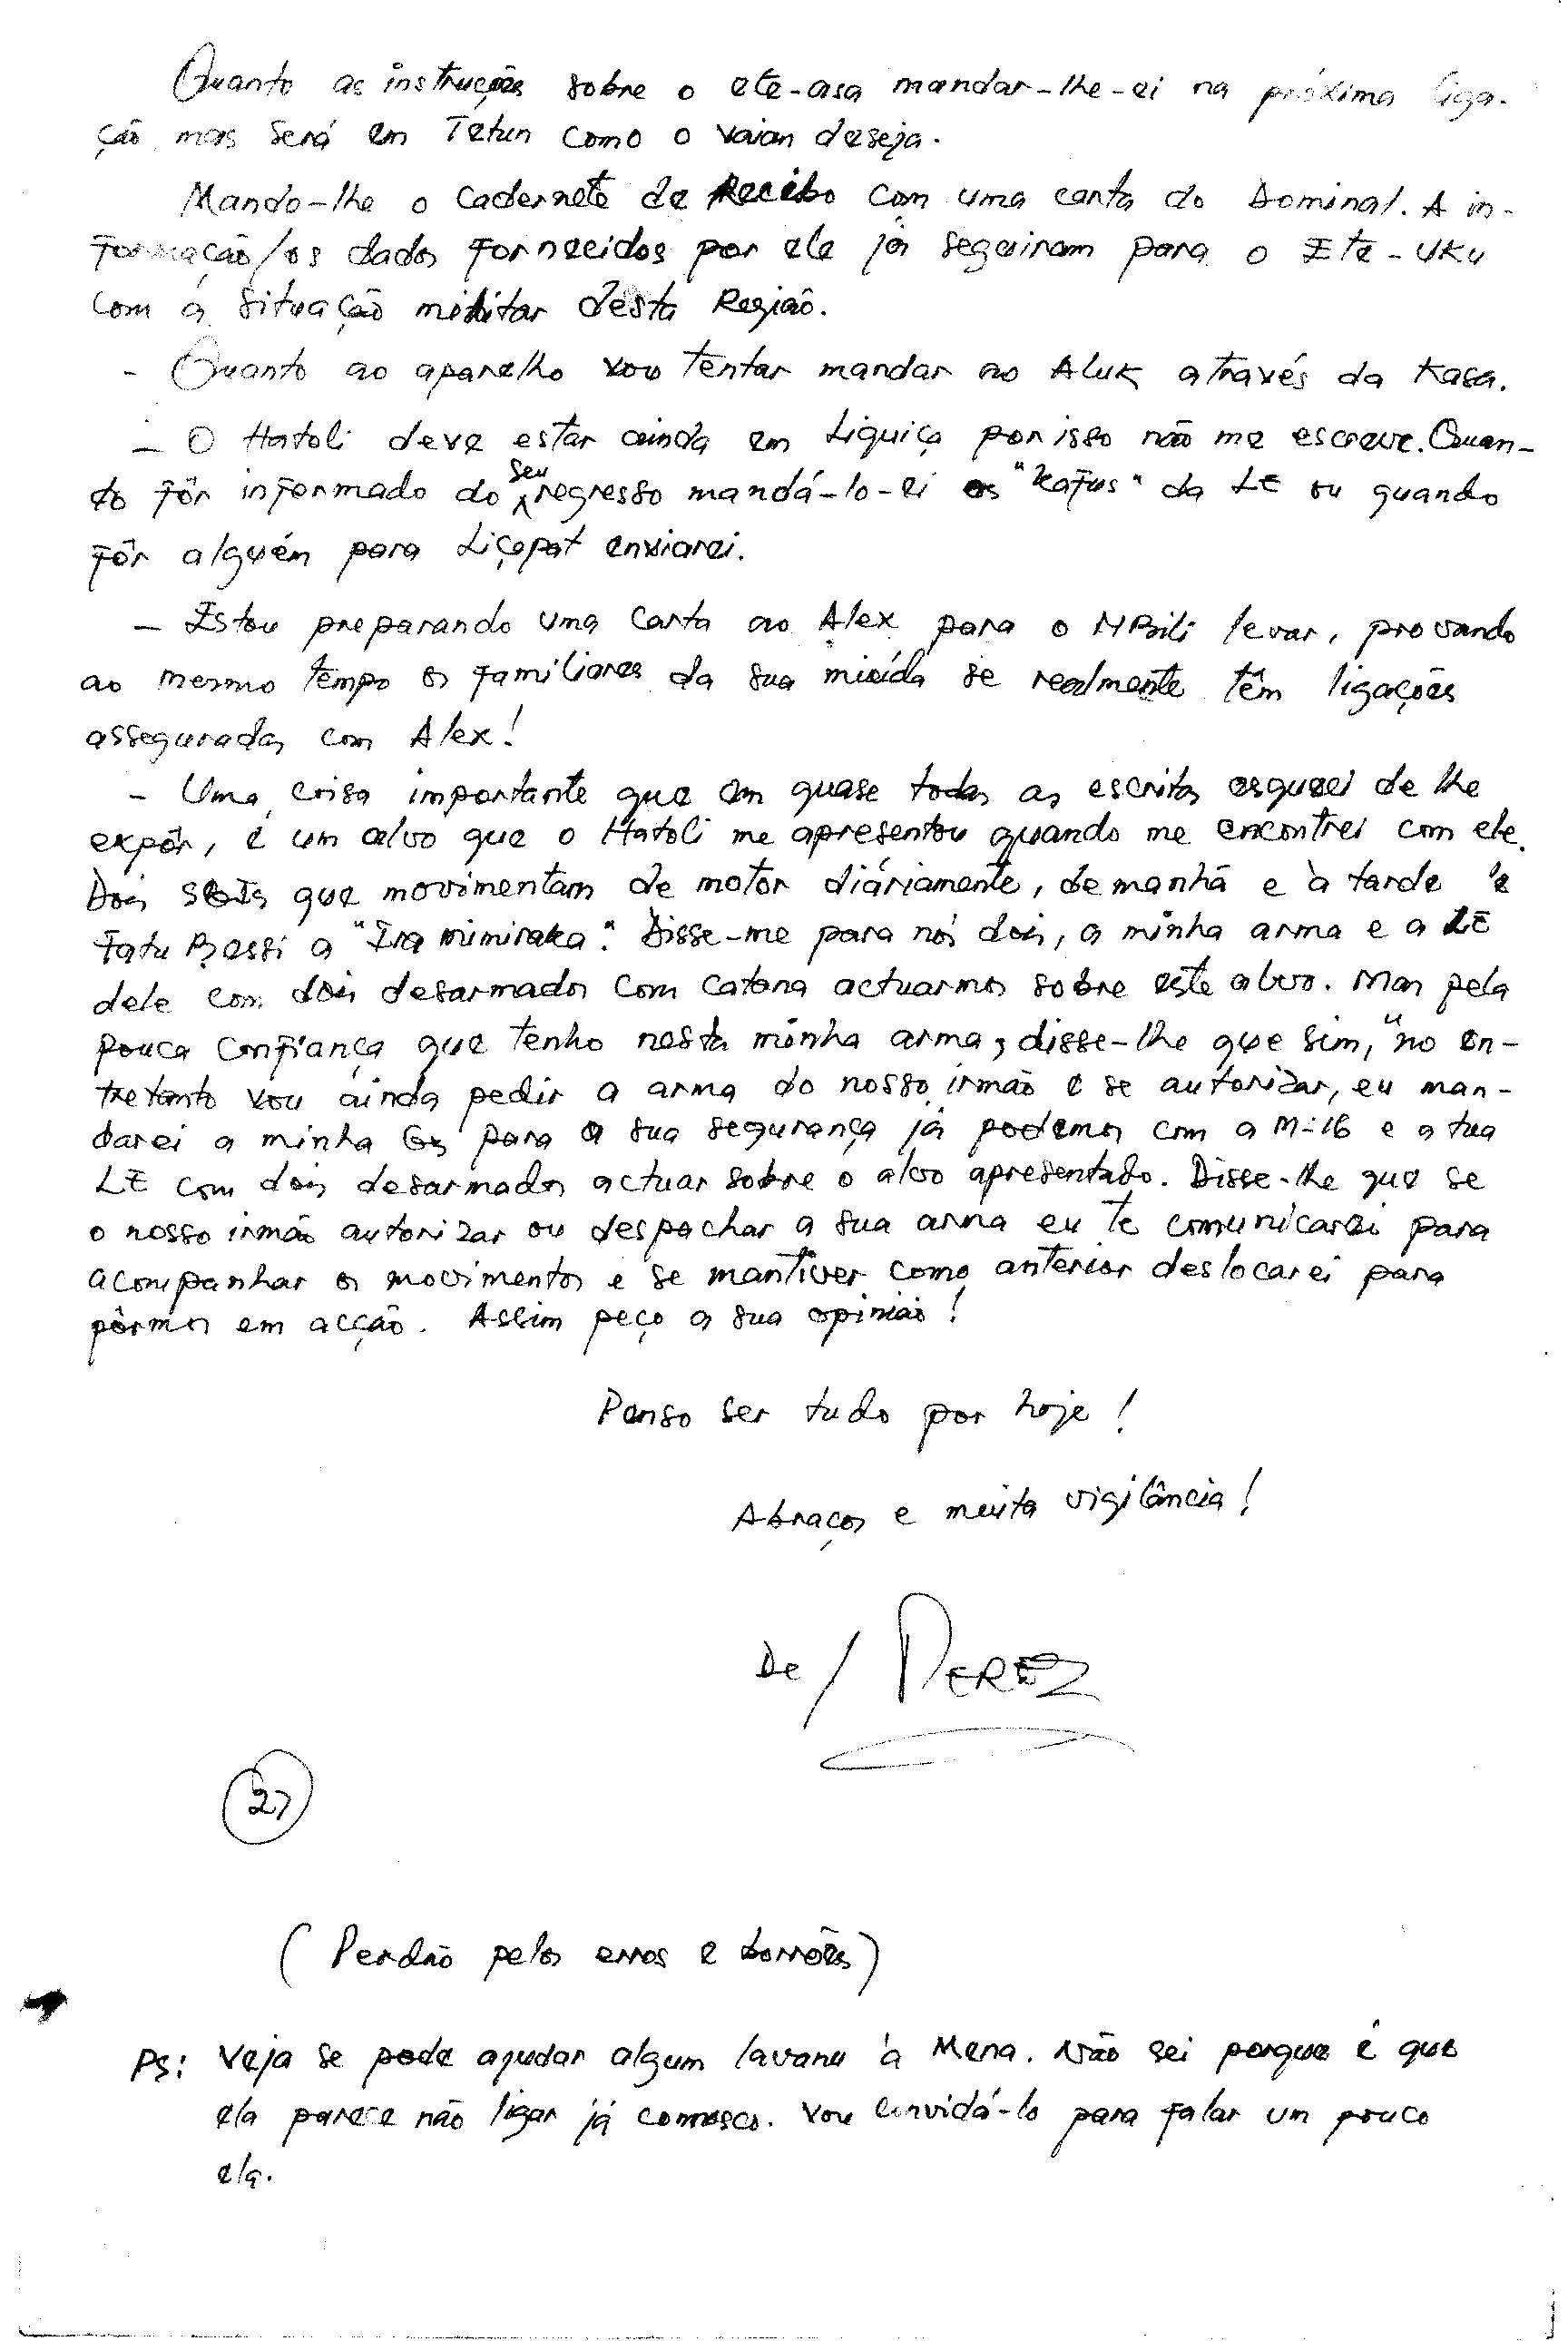 Quanto as instruções sobre o ete-asa mandar-lhe-ei na próxima liga-
ção mas será em Tetun como o vaian deseja.
Mando-lhe o cadernete de Recibo com uma carta do Dominal. A in-
formação/os dados fornecidos por ele já seguiram para o Ete-Uku
com a situação militar desta Região.
- Quanto ao aparelho vou tentar mandar ao Aluk através da Kasa.
- O Hatoli deve estar ainda em Liquiça por isso não me escreve. Quan-
do fôr informado do seu regresso mandá-lo-ei os "kafus" da LE ou quando
fôr alguém para Liçapat enviarei.
- Estou preparando uma carta ao Alex para o MBili levar, provando
ao mesmo tempo os familiares da sua miúda se realmente têm ligações
asseguradas com Alex!
- Uma coisa importante que em quase todas as escritas esqueci de lhe
expôr, é um alvo que o Hatoli me apresentou quando me encontrei com ele.
Dois que movimentam de motor diáriamente, de manhã e à tarde
Fatu Bessi a "Era mimiraka". Disse-me para nós dois, a minha arma e a LE
dele com dois desarmados com catana actuarmos sobre este alvo. Mas pela
pouca confiança que tenho nesta minha arma, disse-lhe que sim, "no en-
tretanto vou ainda pedir a arma do nosso irmão e se autorizar, eu man-
darei a minha G3 para a sua segurança já podemos com a M-16 e a tua
LE com dois desarmados actuar sobre o alvo apresentado. Disse-lhe que se
o nosso irmão autorizar ou despachar a sua arma eu te comunicarei para
acompanhar os movimentos e se mantiver como anterior deslocarei para
pôrmos em acção. Assim peço a sua opinião!
Penso ser tudo por hoje!
Abraços e muita vigilância!
De / PEREZ
27
(Perdão pelos erros e borrões)
PS: Veja se pode ajudar algum lavanu à Mena. Não sei porque é que
ela parece não ligar já connosco. Vou convidá-lo para falar um pouco
ela.